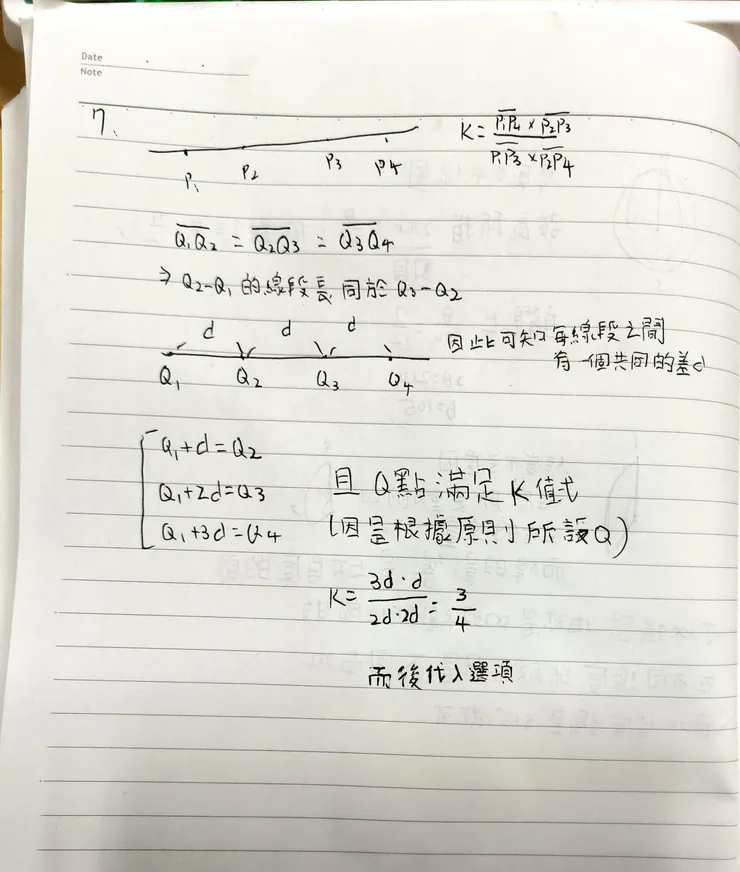 Date
Note
7、
P₁ P₂ P₃ P₄
K = \frac{\overline{P₁P₄} × \overline{P₂P₃}}{\overline{P₁P₃} × \overline{P₂P₄}}
\overline{Q₁Q₂} = \overline{Q₂Q₃} = \overline{Q₃Q₄}
⇒ Q₂-Q₁ 的線段長同於 Q₃-Q₂
d d d
Q₁ Q₂ Q₃ Q₄
因此可知每線段之間
有一個共同的差d
Q₁+d=Q₂
Q₁+2d=Q₃
Q₁+3d=Q₄
且 Q點滿足K值式
(因是根據原則所設Q)
K = \frac{3d·d}{2d·2d} = \frac{3}{4}
而後代入選項